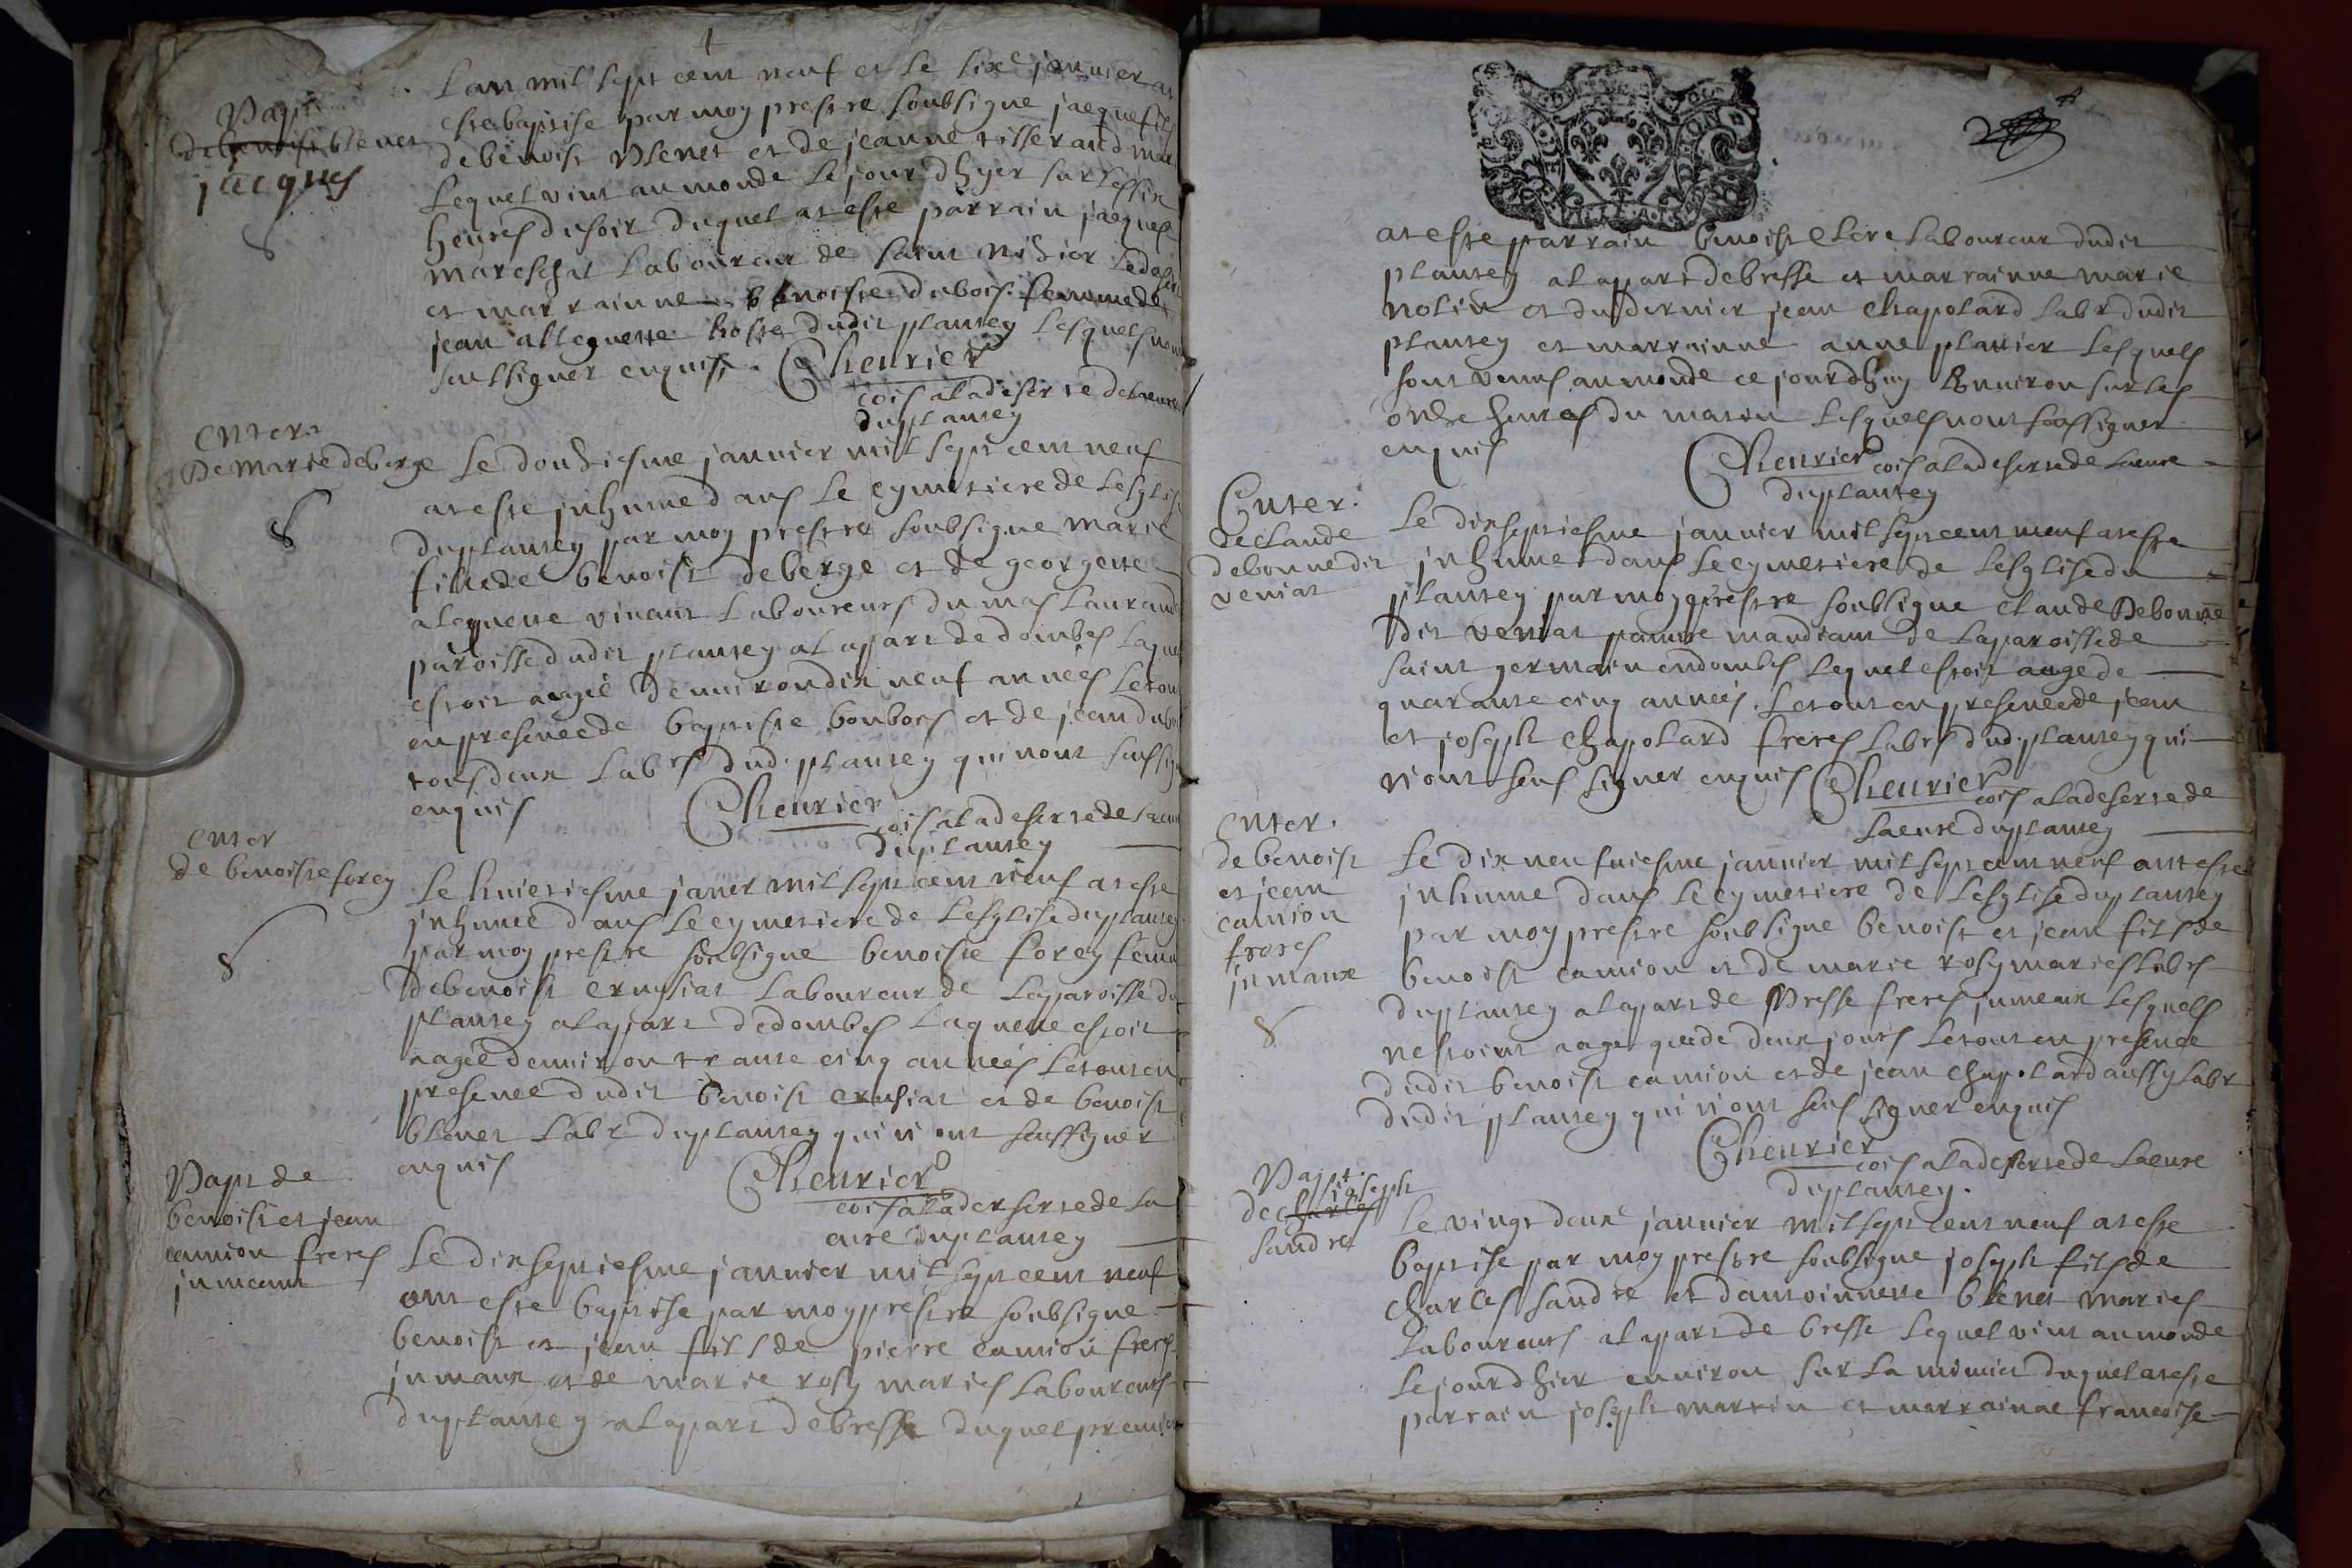 Bapt
de benoist blenet
jacques
Lan mil sept cent neuf et le sixe janvier at
este baptise par moy prestre soubsigne jacque fils
de benoist Blenet et de jeanne tisserand mar
Lequel vint au monde le jour dhyer sur les six
heures du soir duquel at este parrain jacques
mareschal Laboureur de saint
et marrainne benoiste dubois femme de
jean allognette hoste dudit plantey Lesquels nont
sceu signer enquis. Cheurier
cois a la deserte de la cure
du plantey
enter
De marie deberge
Le douziesme janvier mil sept cent neuf
at este inhume dans le cymetiere de Leglis
du plantey par moy prestre soubsigne marie
fille de benoist deberge et de georgette
alognette vivant Laboureurs du mas Laurand
paroisse dudit plantey a la part de dombes Laque
estoit aagee denviron dix neuf annees Le tout
en presence de baptiste bonbois et de jean dub
tous deux Labrs dud. plantey qui nont sceu sig
enquis Cheurier
cois a la deserte de la cure
du plantey
enter
de benoiste forey
Le huictiesme janer mil sept cent neuf at este
inhumee dans le cymetiere de Leglise du plantey
par moy prestre soubsigne benoiste forey femm
de benoist crussiat Laboureur de la paroisse du
plantey a la part de dombes Laquelle estoit
aagee denviron trante cinq annees Le tout en
presence dudit benoist crussiat et de benoist
blenet Labr du plantey qui nont sceu signer
enquis Cheurier
cois a la derserte de la
cure du plantey
Bapt de
benoist et jean
camion freres
jumeaux
Le dix septiesme janvier mil sept cent neuf
ont este baptise par moy prestre soubsigne
benoist et jean fils de pierre camion freres
jumaux et de marie rosy maries Laboureurs
du plantey a la part de bresse duquel premier
at este parrain benoist clere Laboureur dudit
plantey a la part de bresse et marrainne marie
nolin et du dernier jean chapolard Labr dudit
plantey et marrainne anne platier Lesquels
sont venus au monde ce jourdhuy Environ sur les
onze heures du matin Lesquels nont sceu signer
enquis Cheurier cois a la deserte de la cure
du plantey
Enter.
de Claude
debonne dit
veniat
Le dix septiesme janvier mil sept cent neuf at este
inhume dans le cymetiere de Leglise du
plantey par moy prestre soubsigne claude Debonne
dit veniat pauvre mandiant de la paroisse de
saint germain en dombes Lequel estoit aage de
quarante cinq annees. Le tout en presence de jean
et joseph chapolard freres Labrs dud. plantey qui
nont sceu signer enquis Cheurier
cois a la deserte de
La cure du plantey
enter.
de benoist
et jean
camion
freres
jumaux
Le dix neufviesme janvier mil sept cent neuf ont este
inhume dans le cymetiere de Leglise du plantey
par moy prestre soubsigne benoist et jean fils de
benoist camion et de marie rosy maries Labrs
du plantey a la part de Bresse freres jumeaux Lesquels
nestoint aage que de deux jours Le tout en presence
dudit benoist camion et de jean chapolard aussy Labr
dudit plantey qui nont sceu signer enquis
Cheurier
cois a la deserte de la cure
du plantey.
Bapt.
joseph
de charles
sandre
Le vingt deuxe janvier mil sept cent neuf at este
baptise par moy prestre soubsigne joseph fils de
charles sandre et dantoinnette blenet maries
Laboureurs a la part de bresse Lequel vint au monde
le jour dhier environ sur la minuict duquel at este
parrain joseph martin et marrainne francoise